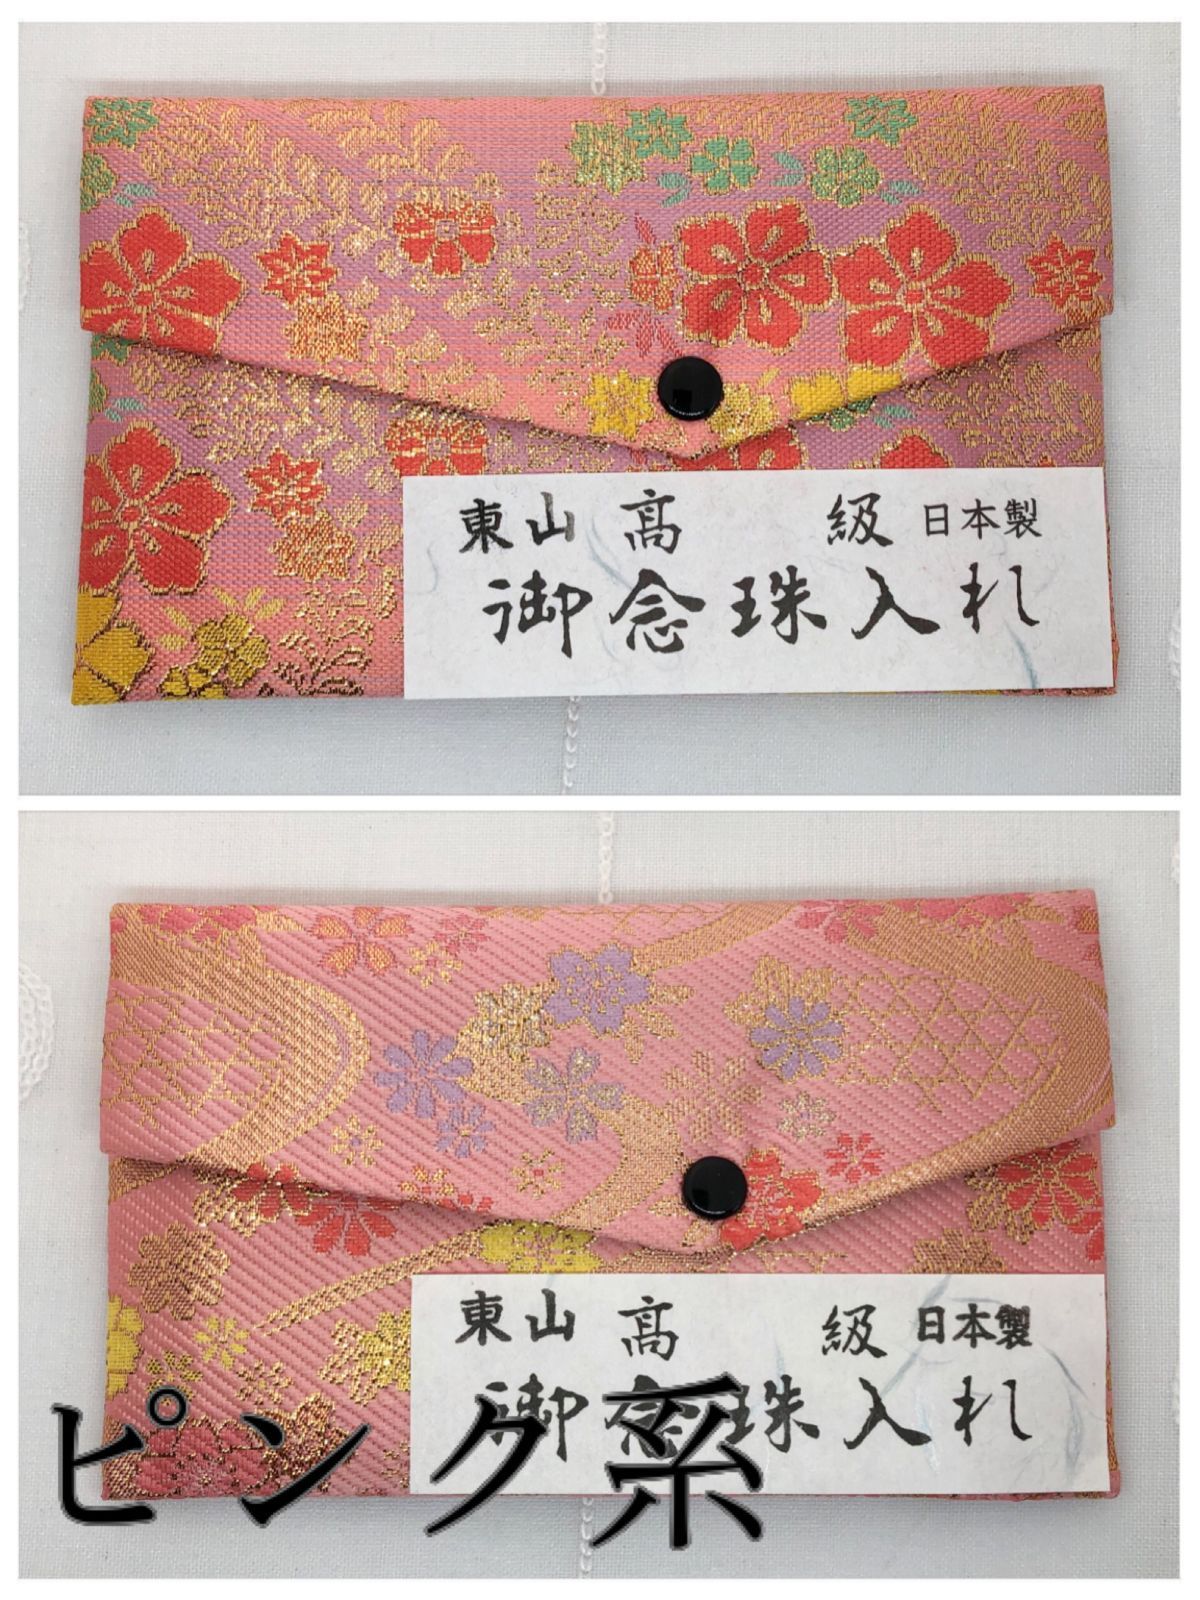 東山 髙 級 日本製
御念珠入札
東山 髙 級 日本製
御念珠入札
ピンク系